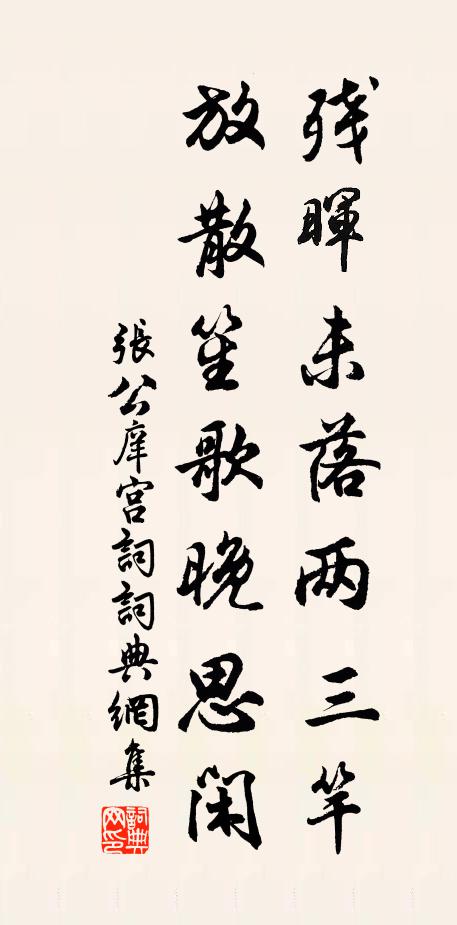 残暉未落两三竿
放散笙歌晚思闲
張公庠宫詞詞典網集
詞典网印